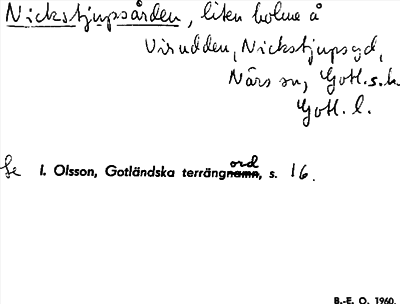 Nickstjupsården, liten holme å
Virudden, Nickstjupsgd,
Närs sn, Gotl. s. h.
Gotl. l.
Se I. Olsson, Gotländska terrängnamn ord, s. 16.
B.-E. O. 1960.